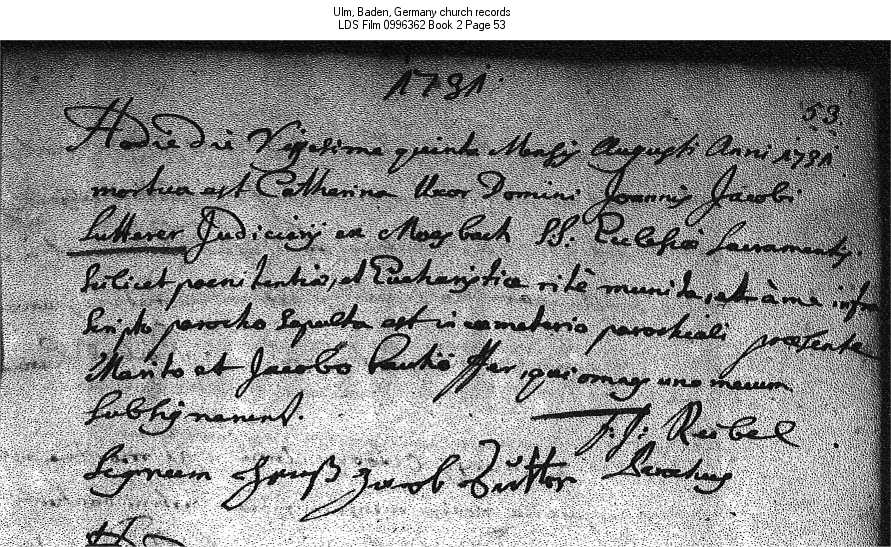 Ulm, Baden, Germany church records
LDS Film 0996362 Book 2 Page 53
1791.
53
Hodie die Vigesima quinta Mensis Augusti Anni 1791
mortua est Catherina Uxor Domini Joannis Jacobi
Lutterer Judicieris ex Mosbach SS. Ecclesiæ Sacramentis.
scilicet poenitentia, et Eucharistica ritè munita, et à me infra
scripto parocho sepulta est in cæmeterio parochiali præsente
Marito et Jacobo qui omnes una mecum
subsignerent.
F: J: Reibel
Signum Jacob Parochus